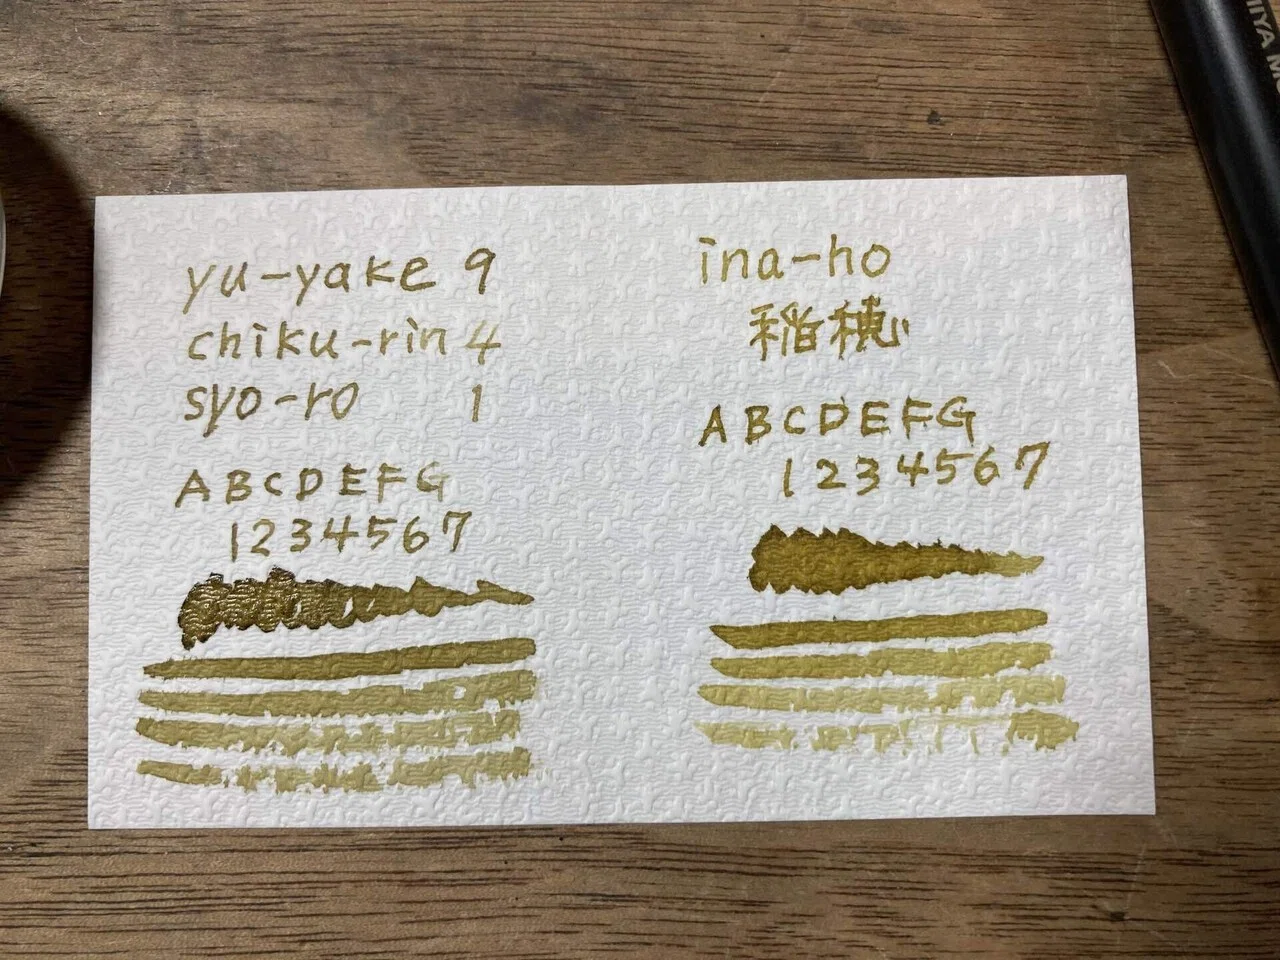 yu-yake 9
chiku-rin 4
syo-ro 1
ABCDEFG
1234567
ina-ho
稲穂
ABCDEFG
1234567